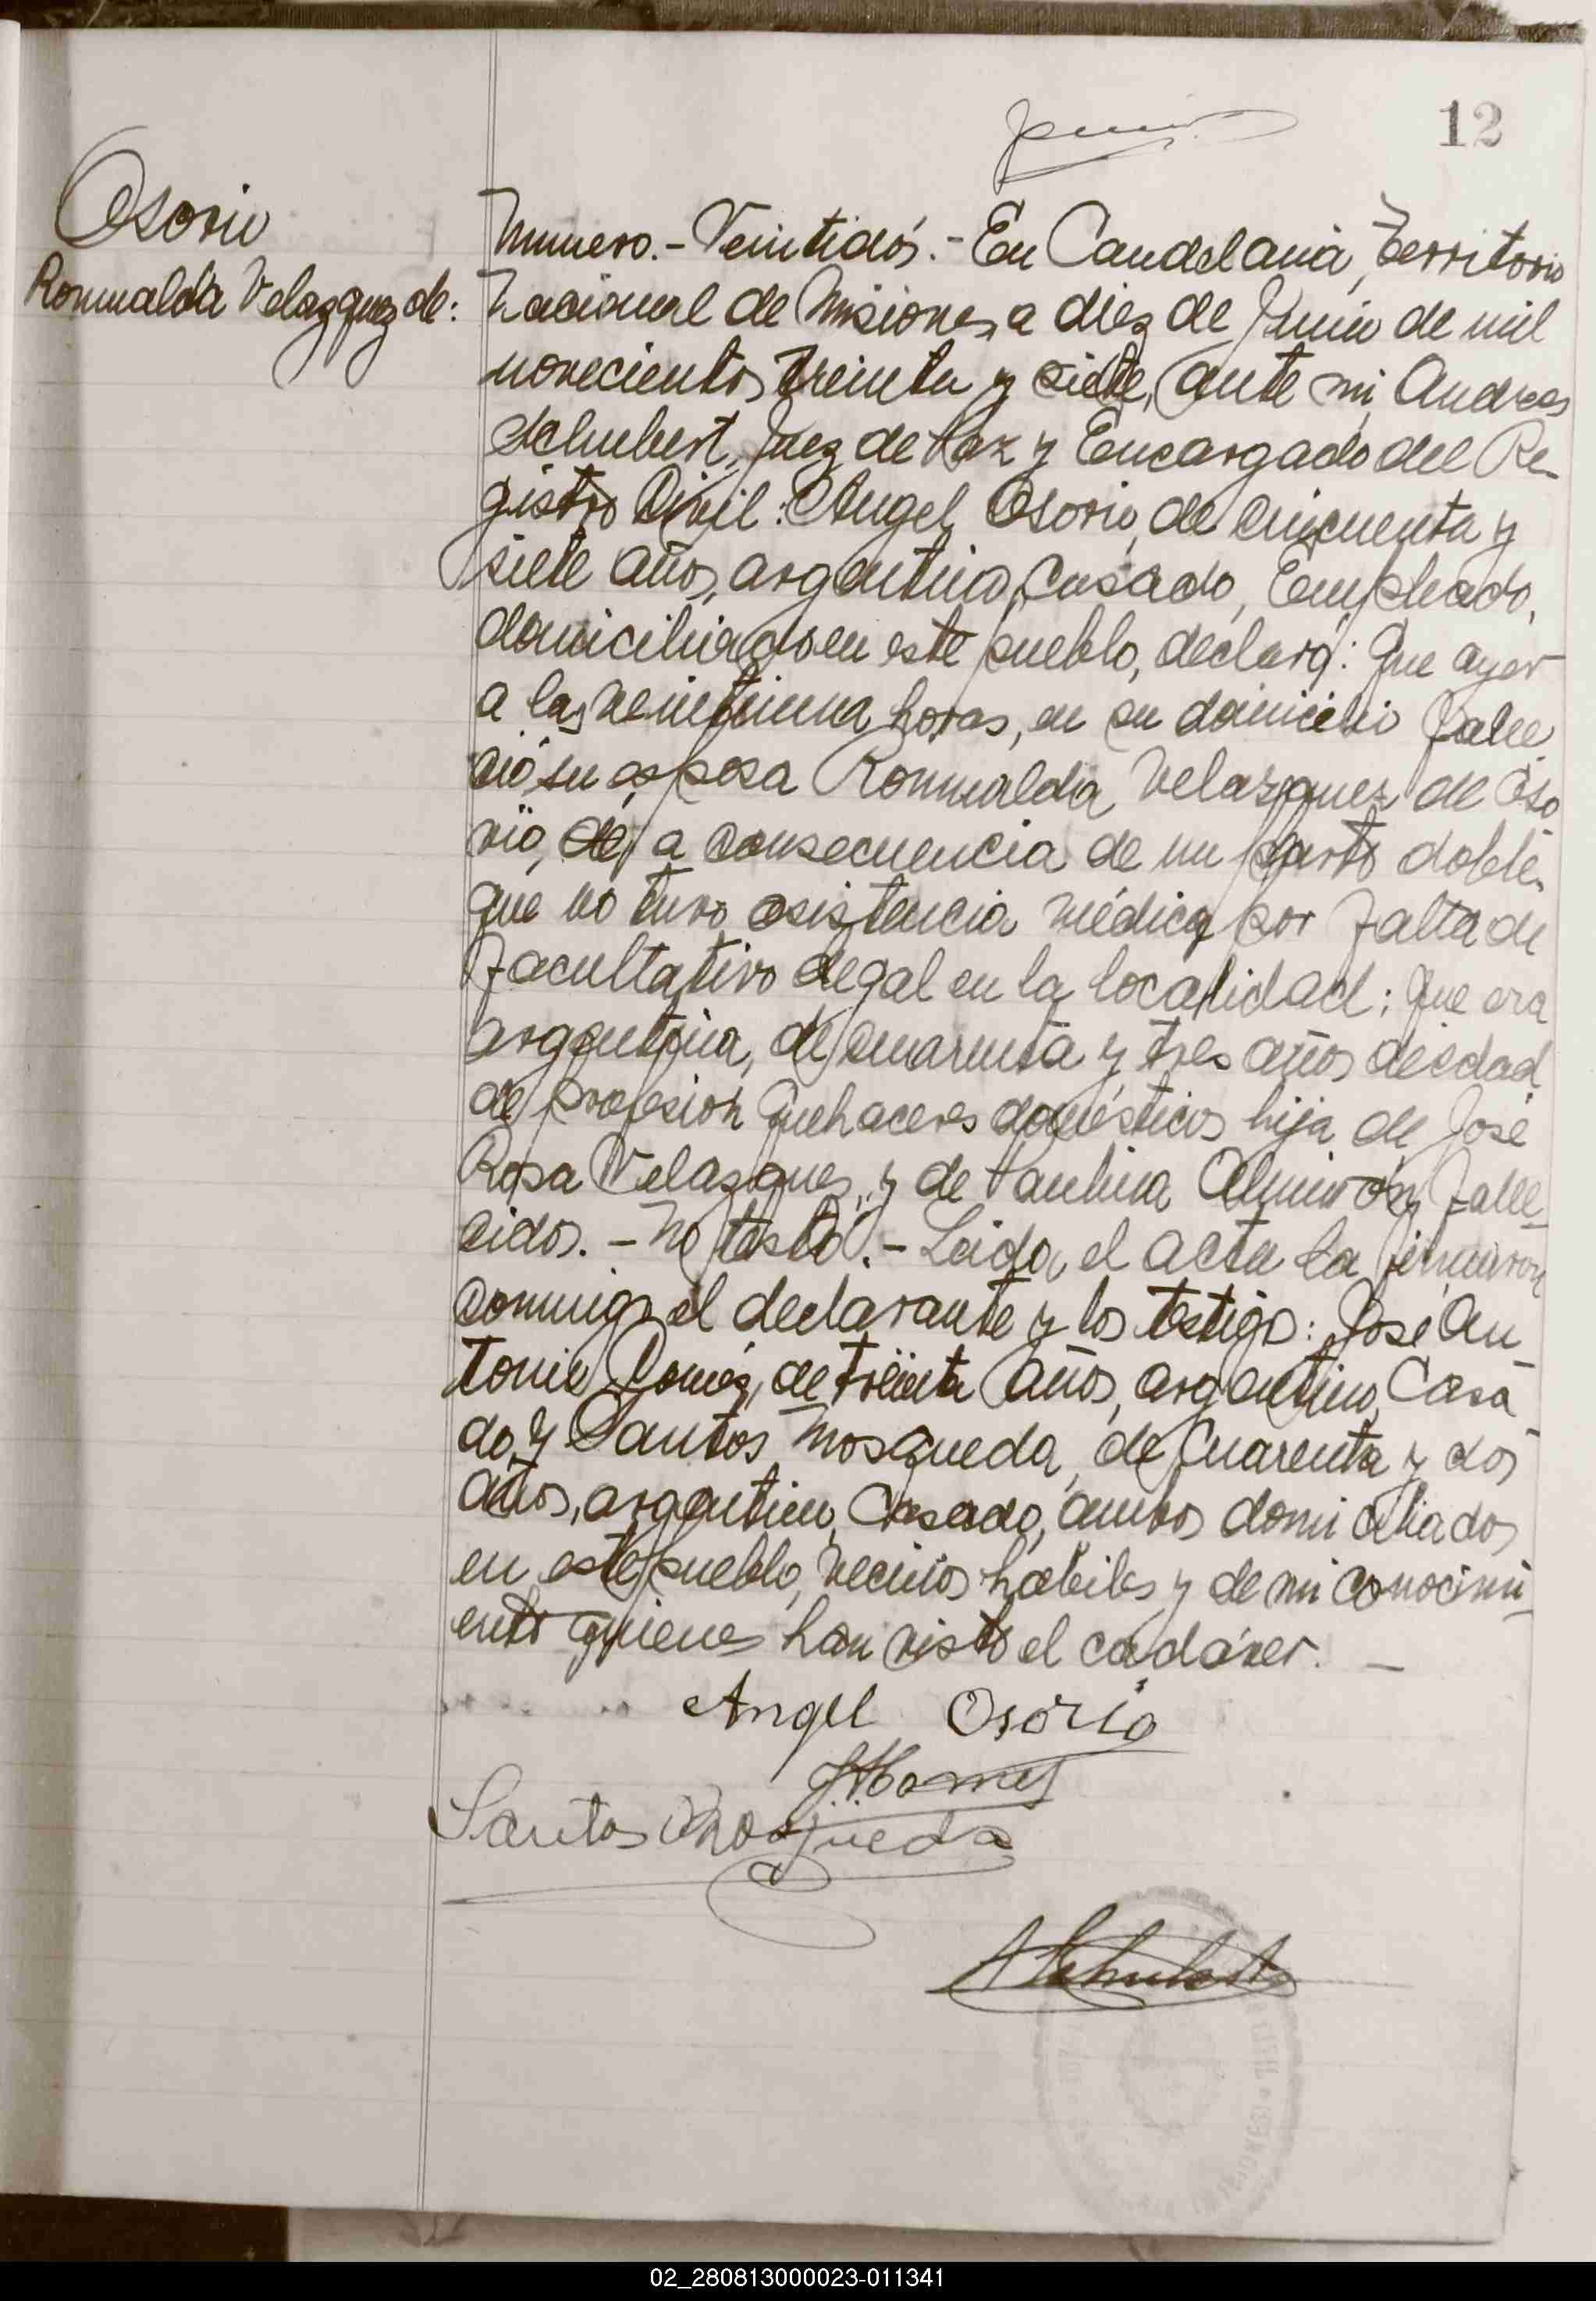 Junio
12
Osorio
Romualda Velazquez de:
Numero.- Veintidós.- En Candelaria, Territorio
Nacional de Misiones, a diez de Junio de mil
novecientos treinta y siete, ante mi, Andres
Schubert, Juez de Paz y Encargado del Re-
gistro Civil: Angel Osorio, de cincuenta y
siete años, argentino, Casado, Empleado,
domiciliado en este pueblo, declaró: Que ayer
a las veintiuna horas, en su domicilio falle
ció su esposa Romualda Velazquez de Oso
rio, de, a consecuencia de un parto doble,
que no tuvo asistencia médica por falta de
facultativo legal en la localidad; que era
argentina, de cuarenta y tres años de edad
de profesion quehaceres domésticos, hija de José
Rosa Velazques, y de Paulina Almirón, falle-
cidos.- No testó.- Leida el acta la firmaron
conmigo el declarante y los testigos: José An-
tonio Gomez, de treinta años, argentino, Casa-
do, y Santos Mosqueda, de cuarenta y dos
años, argentino, Casado, ambos domiciliados
en este pueblo, vecinos hábiles y de mi conocimi-
ento quienes han visto el cadáver. -
Angel Osorio
J.A. Gomez
Santos Mosqueda
A Schubert
MISIONES
02_280813000023-011341